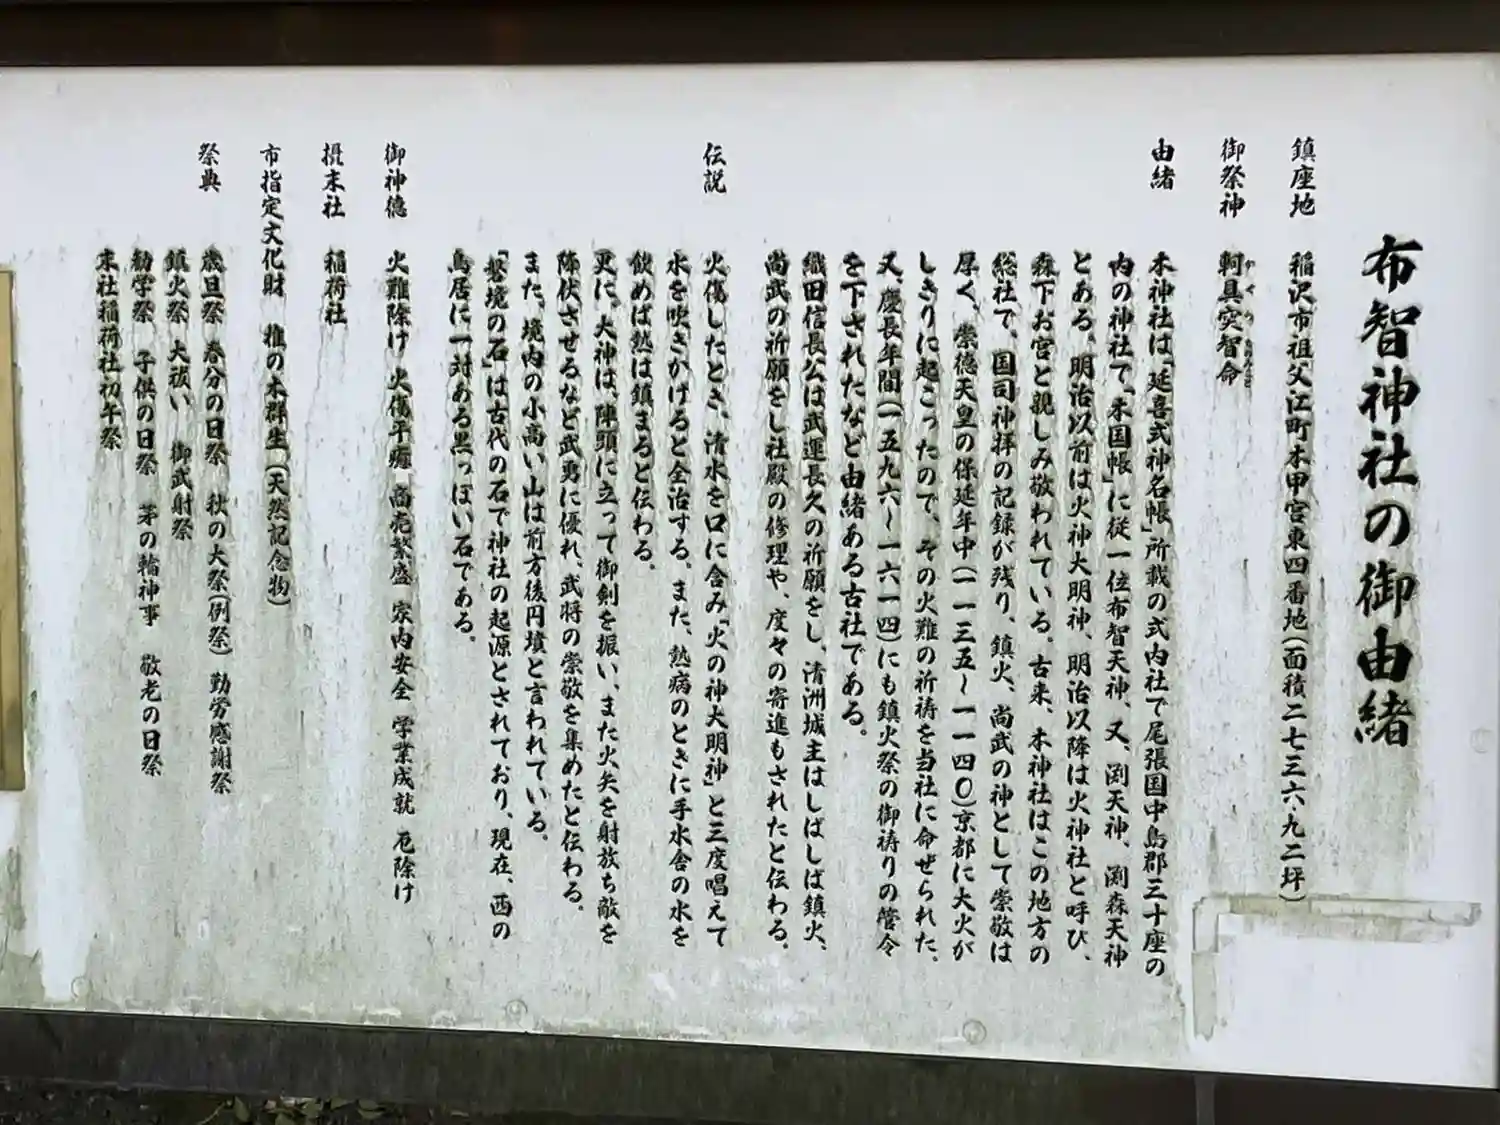 布智神社の御由緒
鎮座地　稲沢市祖父江町本甲宮東四番地(面積二七三六・九二坪)
御祭神　軻具突智命
かぐつちのみこと
由緒　本神社は「延喜式神名帳」所載の式内社で尾張国中島郡三十座の
内の神社で、「本国帳」に従一位布智天神、又、渕天神、渕森天神
とある。明治以前は火神大明神、明治以降は火神社と呼び、
森下お宮と親しみ敬われている。古来、本神社はこの地方の
総社で、国司神拝の記録が残り、鎮火、尚武の神として崇敬は
厚く、崇徳天皇の保延年中(一一三五～一一四〇)京都に大火が
しきりに起こったので、その火難の祈祷を当社に命ぜられた、
又、慶長年間(一五九六～一六一四)にも鎮火祭の御祷りの管令
を下されたなど由緒ある古社である。
織田信長公は武運長久の祈願をし、清洲城主はしばしば鎮火、
尚武の祈願をし社殿の修理や、度々の寄進もされたと伝わる。
伝説　火傷したとき、清水を口に含み「火の神大明神」と三度唱えて
水を吹きかけると全治する。また、熱病のときに手水舎の水を
飲めば熱は鎮まると伝わる。
更に、大神は、陣頭に立って御剣を振い、また火矢を射放ち敵を
降伏させるなど武勇に優れ、武将の崇敬を集めたと伝わる。
また、境内の小高い山は前方後円墳と言われている。
「磐境の石」は古代の石で神社の起源とされており、現在、西の
鳥居に一対ある黒っぽい石である。
御神徳　火難除け　火傷平癒　商売繁盛　家内安全　学業成就　厄除け
摂末社　稲荷社
市指定文化財　椎の木群生(天然記念物)
祭典　歳旦祭　春分の日祭　秋の大祭(例祭)　勤労感謝祭
鎮火祭　大祓い　御武射祭
勧学祭　子供の日祭　茅の輪神事　敬老の日祭
末社稲荷社初午祭